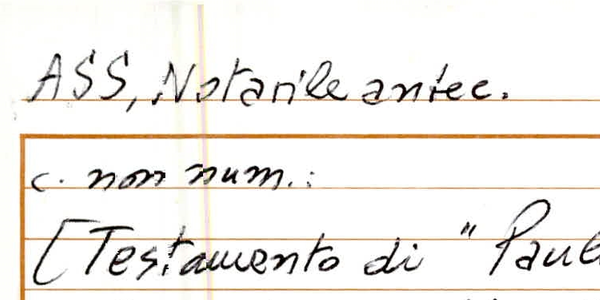 ASS, Notarile antec.
c. non num.:
[Testamento di "Paul